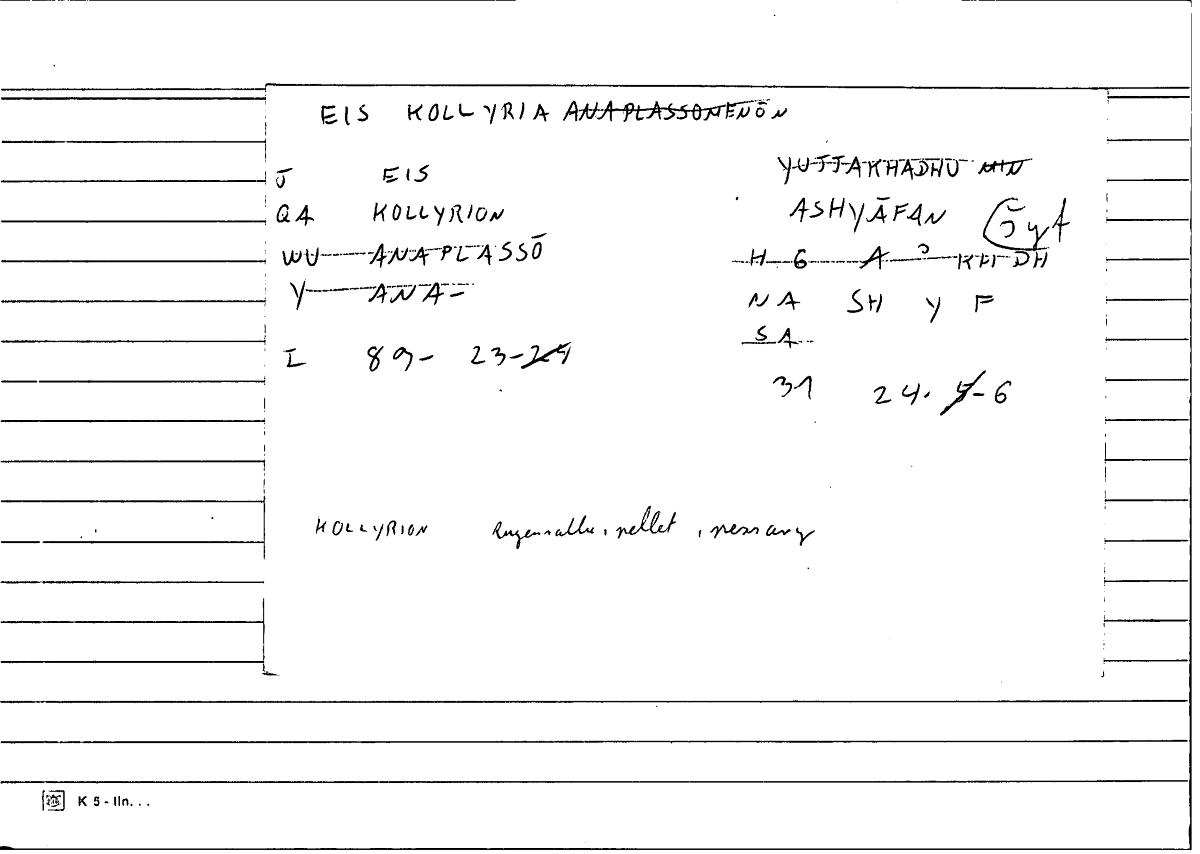 EIS KOLLYRIA ANAPLASSOMENŌN
J̄ EIS YUTTAKHADHU MIN
QA KOLLYRION ASHYĀFAN
WU ANAPLASSŌ H 6 A ? KHI DH
Y ANA- NA SH Y F
SA
I 89- 23-24
31 24. 5-6
KOLLYRION Augensalbe, pellet, pessary
K 5 - lln. . .